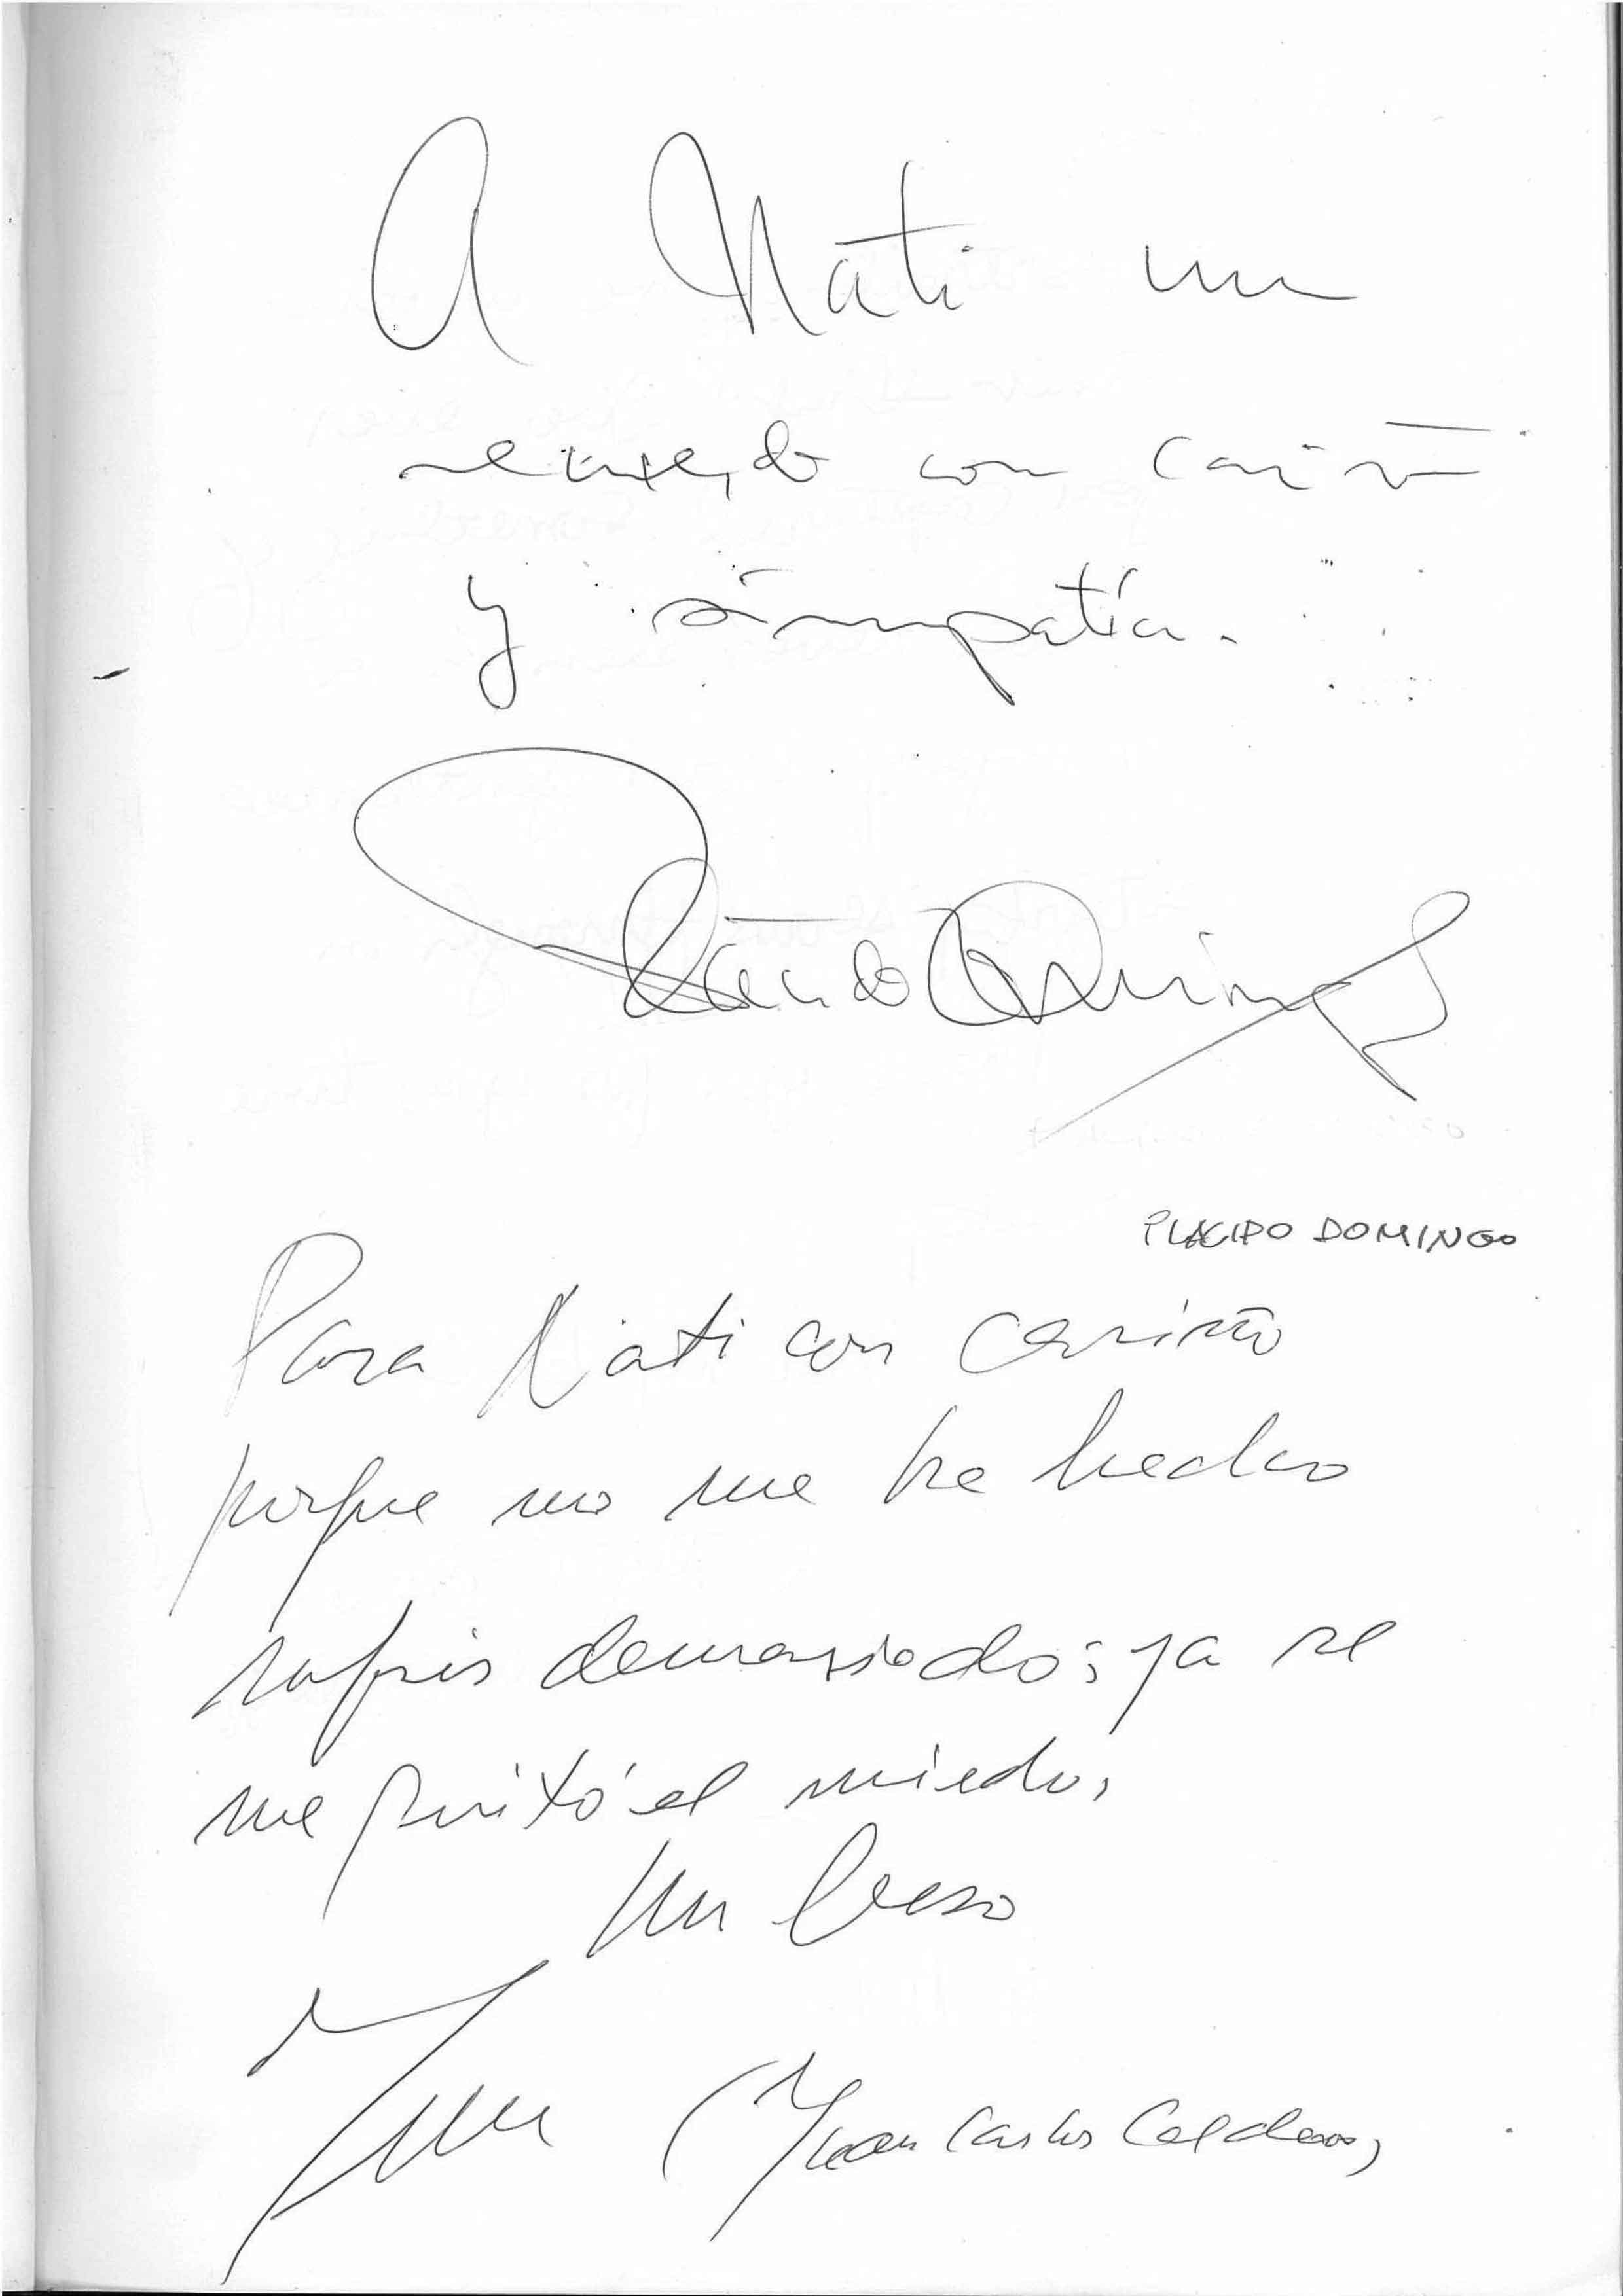 A Nati un
recuerdo con cariño
y simpatía.
Plácido Domingo
PLACIDO DOMINGO
Para Nati con cariño
porque no me ha hecho
sufrir demasiado; ya se
me quitó el miedo.
Un beso
Juan (Juan Carlos Calderon)